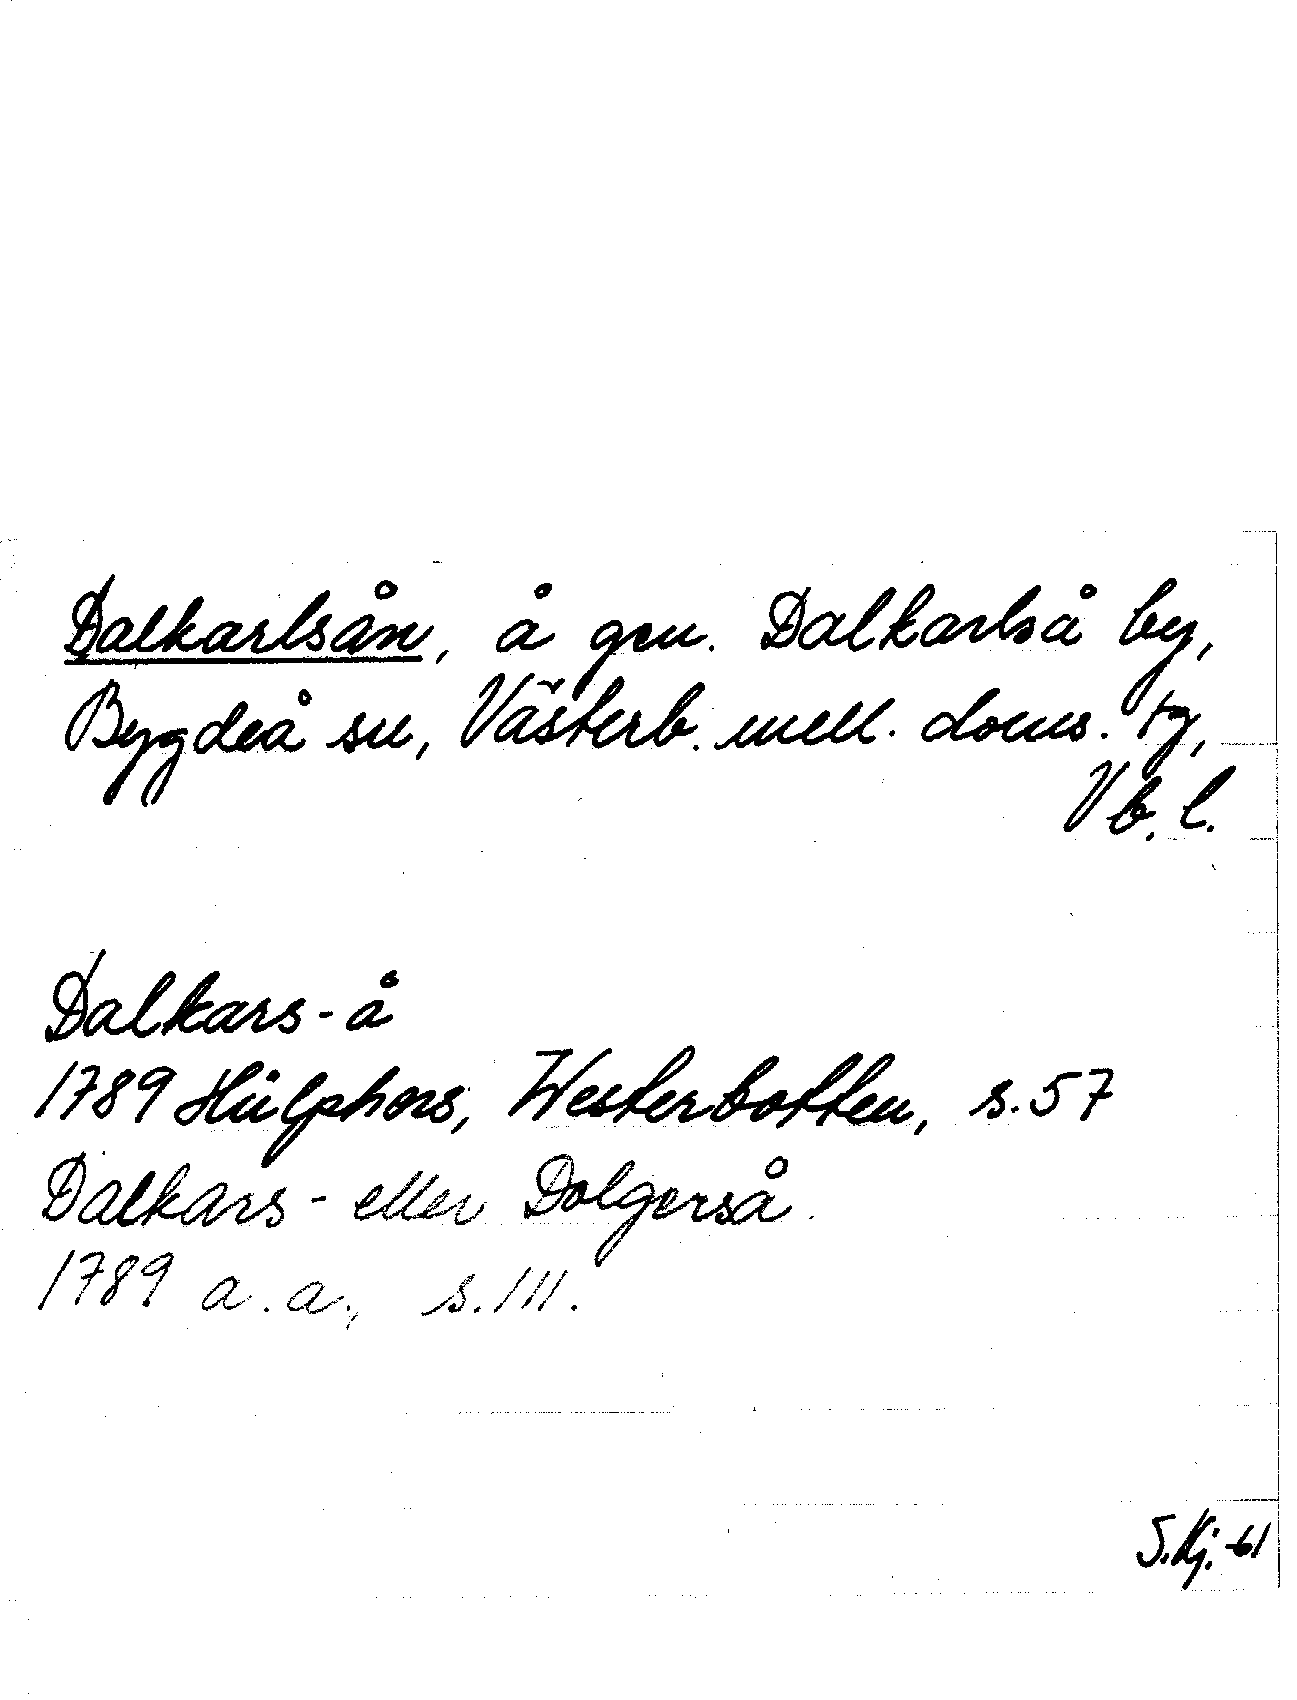 Dalkarlsån, å gen. Dalkarlså by,
Bygdeå sn, Västerb. mell. doms. tg,
Vb. l.
Dalkars-å
1789 Hülphers, Westerbotten, s. 57
Dalkars- eller Dolgerså.
1789 a.a., s. 111.
S.Kj. -61